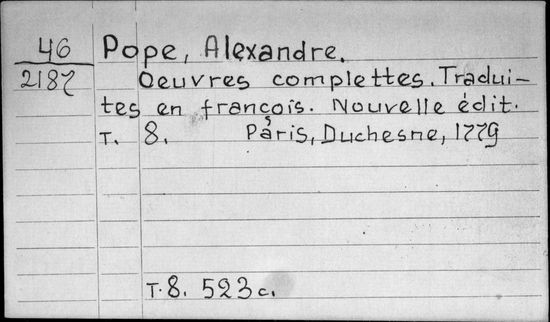 46 Pope, Alexandre.
2187 Oeuvres complettes. Tradui-
tes en françois. Nouvelle édit.
T. 8. Paris, Duchesne, 1779
T. 8. 523 c.